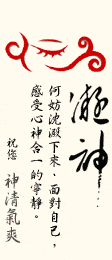 凝神
何妨沈澱下來、面對自己，
感受心神合一的寧靜。
祝您 神清氣爽